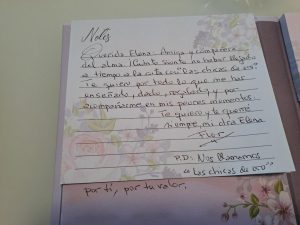 Notes
Querida Elena: Amiga y compañera
del alma. ¡Cuánto siento no haber llegado
a tiempo a la cita con "Las chicas de oro"
Te quiero por todo lo que me has
enseñado, dado, regalado y por
acompañarme en mis peores momentos.
Te quiero y te querré
siempre, mi otra Elena
Flor
P.D: Nos llamamos
"Las chicas de oro"
por ti, por tu valor,